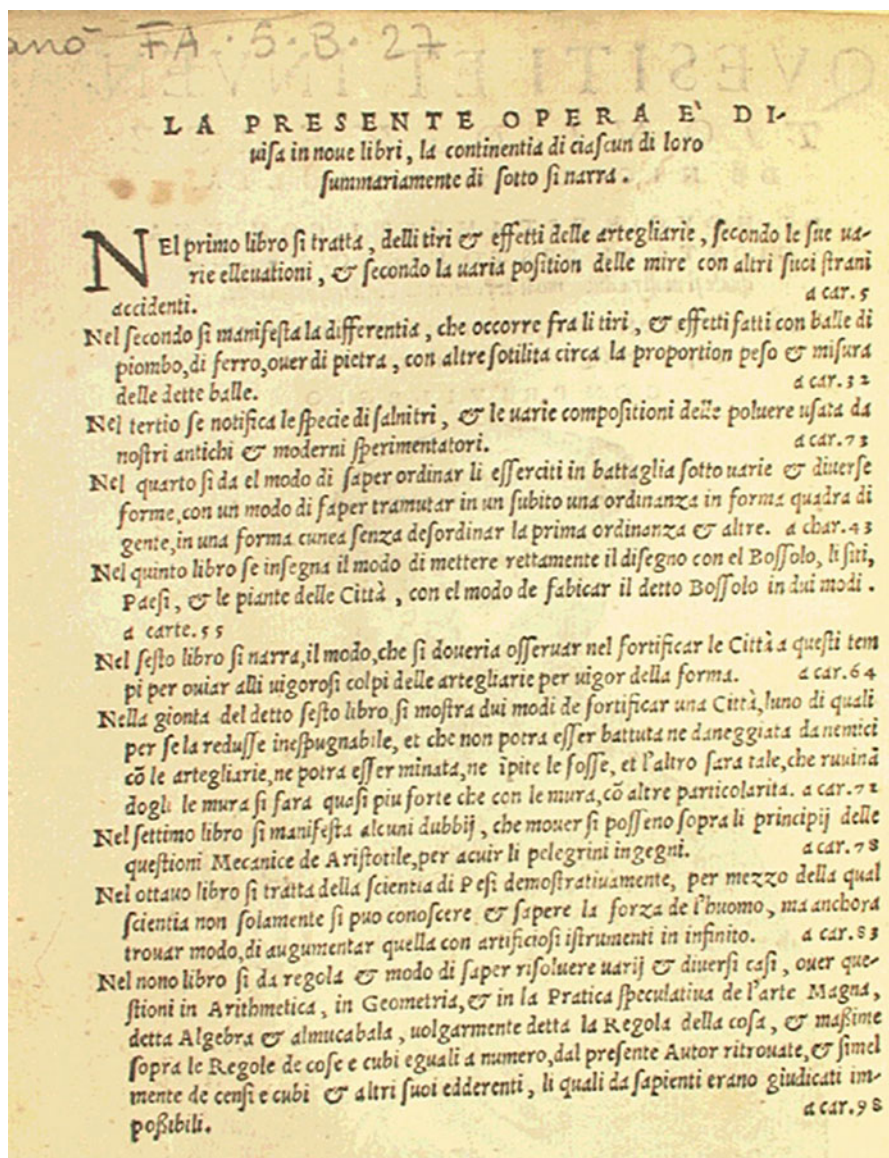 anō FA·5·B·27
LA PRESENTE OPERA È DI-
uiſa in noue libri, la continentia di ciaſcun di loro
ſummariamente di ſotto ſi narra.
NEl primo libro ſi tratta, delli tiri & effetti delle artegliarie, ſecondo le ſue ua-
rie elleuationi, & ſecondo la uaria poſition delle mire con altri ſuoi ſtrani
accidenti. a car.5
Nel ſecondo ſi manifeſta la differentia, che occorre fra li tiri, & effetti fatti con balle di
piombo, di ferro, ouer di pietra, con altre ſotilita circa la proportion peſo & miſura
delle dette balle. a car.32
Nel tertio ſe notifica le ſpecie di ſalnitri, & le uarie compoſitioni delle poluere uſata da
noſtri antichi & moderni ſperimentatori. a car.73
Nel quarto ſi da el modo di ſaper ordinar li eſſerciti in battaglia ſotto uarie & diuerſe
forme, con un modo di ſaper tramutar in un ſubito una ordinanza in forma quadra di
gente, in una forma cunea ſenza deſordinar la prima ordinanza & altre. a char.43
Nel quinto libro ſe inſegna il modo di mettere rettamente il diſegno con el Boſſolo, li ſiti,
Paeſi, & le piante delle Città, con el modo de fabicar il detto Boſſolo in dui modi.
a carte.55
Nel ſeſto libro ſi narra, il modo, che ſi doueria oſſeruar nel fortificar le Città a queſti tem
pi per ouiar alli uigoroſi colpi delle artegliarie per uigor della forma. a car.64
Nella gionta del detto ſeſto libro, ſi moſtra dui modi de fortificar una Città, luno di quali
per ſe la reduſſe ineſpugnabile, et che non potra eſſer battuta ne daneggiata da nemici
cō le artegliarie, ne potra eſſer minata, ne īpite le foſſe, et l'altro ſara tale, che ruuinā
dogli le mura ſi fara quaſi piu forte che con le mura, cō altre particolarita. a car.72
Nel ſettimo libro ſi manifeſta alcuni dubbij, che mouer ſi poſſeno ſopra li principij delle
queſtioni Mecanice de Ariſtotile, per acuir li pelegrini ingegni. a car.78
Nel ottauo libro ſi tratta della ſcientia di Peſi demoſtratiuamente, per mezzo della qual
ſcientia non ſolamente ſi puo conoſcere & ſapere la forza de l'huomo, ma anchora
trouar modo, di augumentar quella con artificioſi iſtrumenti in infinito. a car.83
Nel nono libro ſi da regola & modo di ſaper riſoluere uarij & diuerſi caſi, ouer que-
ſtioni in Arithmetica, in Geometria, & in la Pratica ſpeculatiua de l'arte Magna,
detta Algebra & almucabala, uolgarmente detta la Regola della coſa, & maßime
ſopra le Regole de coſe e cubi eguali a numero, dal preſente Autor ritrouate, & ſimel
mente de cenſi e cubi & altri ſuoi edderenti, li quali da ſapienti erano giudicati im-
poßibili. a car.98